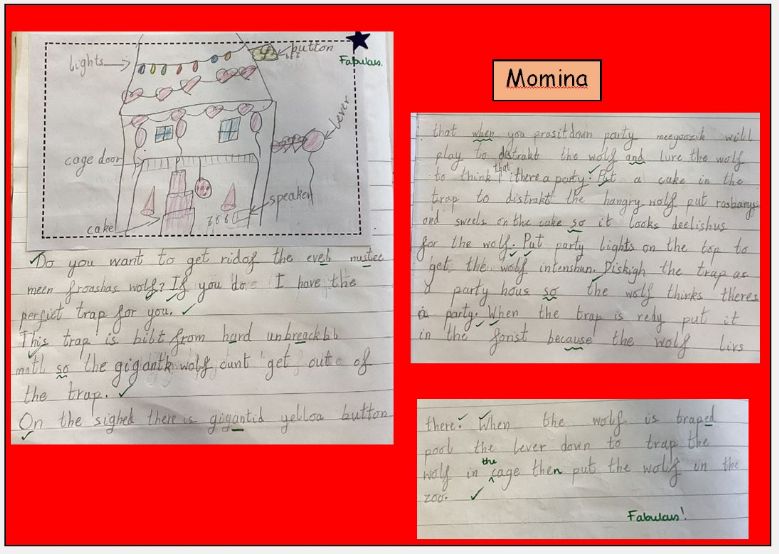 Momina
lights
button
Fabulous.
lever
cage door
speaker
cake
Do you want to get ridof the eveb nustee
meen froashas wolf? If you doe I have the
perfict trap for you.
This trap is bilt from hard unbreackbl
matl so the gigantk wolf cunt get oute of
the trap.
On the sighed there is gigantid yelloa button
that when you prasitdown party meeyoozik will
play to distrakt the wolf and lure the wolf
to think that there a party. Put a cake in the
trap to distrakt the hangry wolf put rasbarys
and sweets on the cake so it looks deelishus
for the wolf. Put party lights on the top to
get the wolf intenshun. Diskigh the trap as
a party hous so the wolf thinks theres
a party. When the trap is redy put it
in the forist because the wolf livs
there. When the wolf is traped
pool the lever down to trap the
wolf in the cage then put the wolf in the
zoo.
Fabulous!